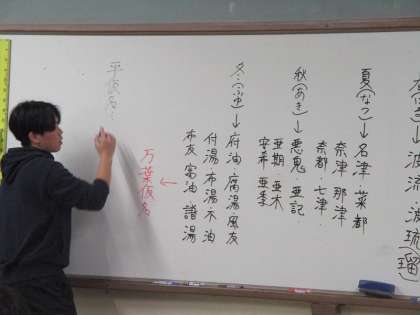 春(はる)→波流・波琉(瑠)
夏(なつ)→名津・菜都
奈津 那津
奈都・七津・
秋(あき)→悪鬼・亜記・
亜期・亜木
安希・亜季
冬(ふゆ)→府油 腐湯 風友
付湯・布湯・不油
布友・富油 譜湯
←
万葉仮名
平仮名: